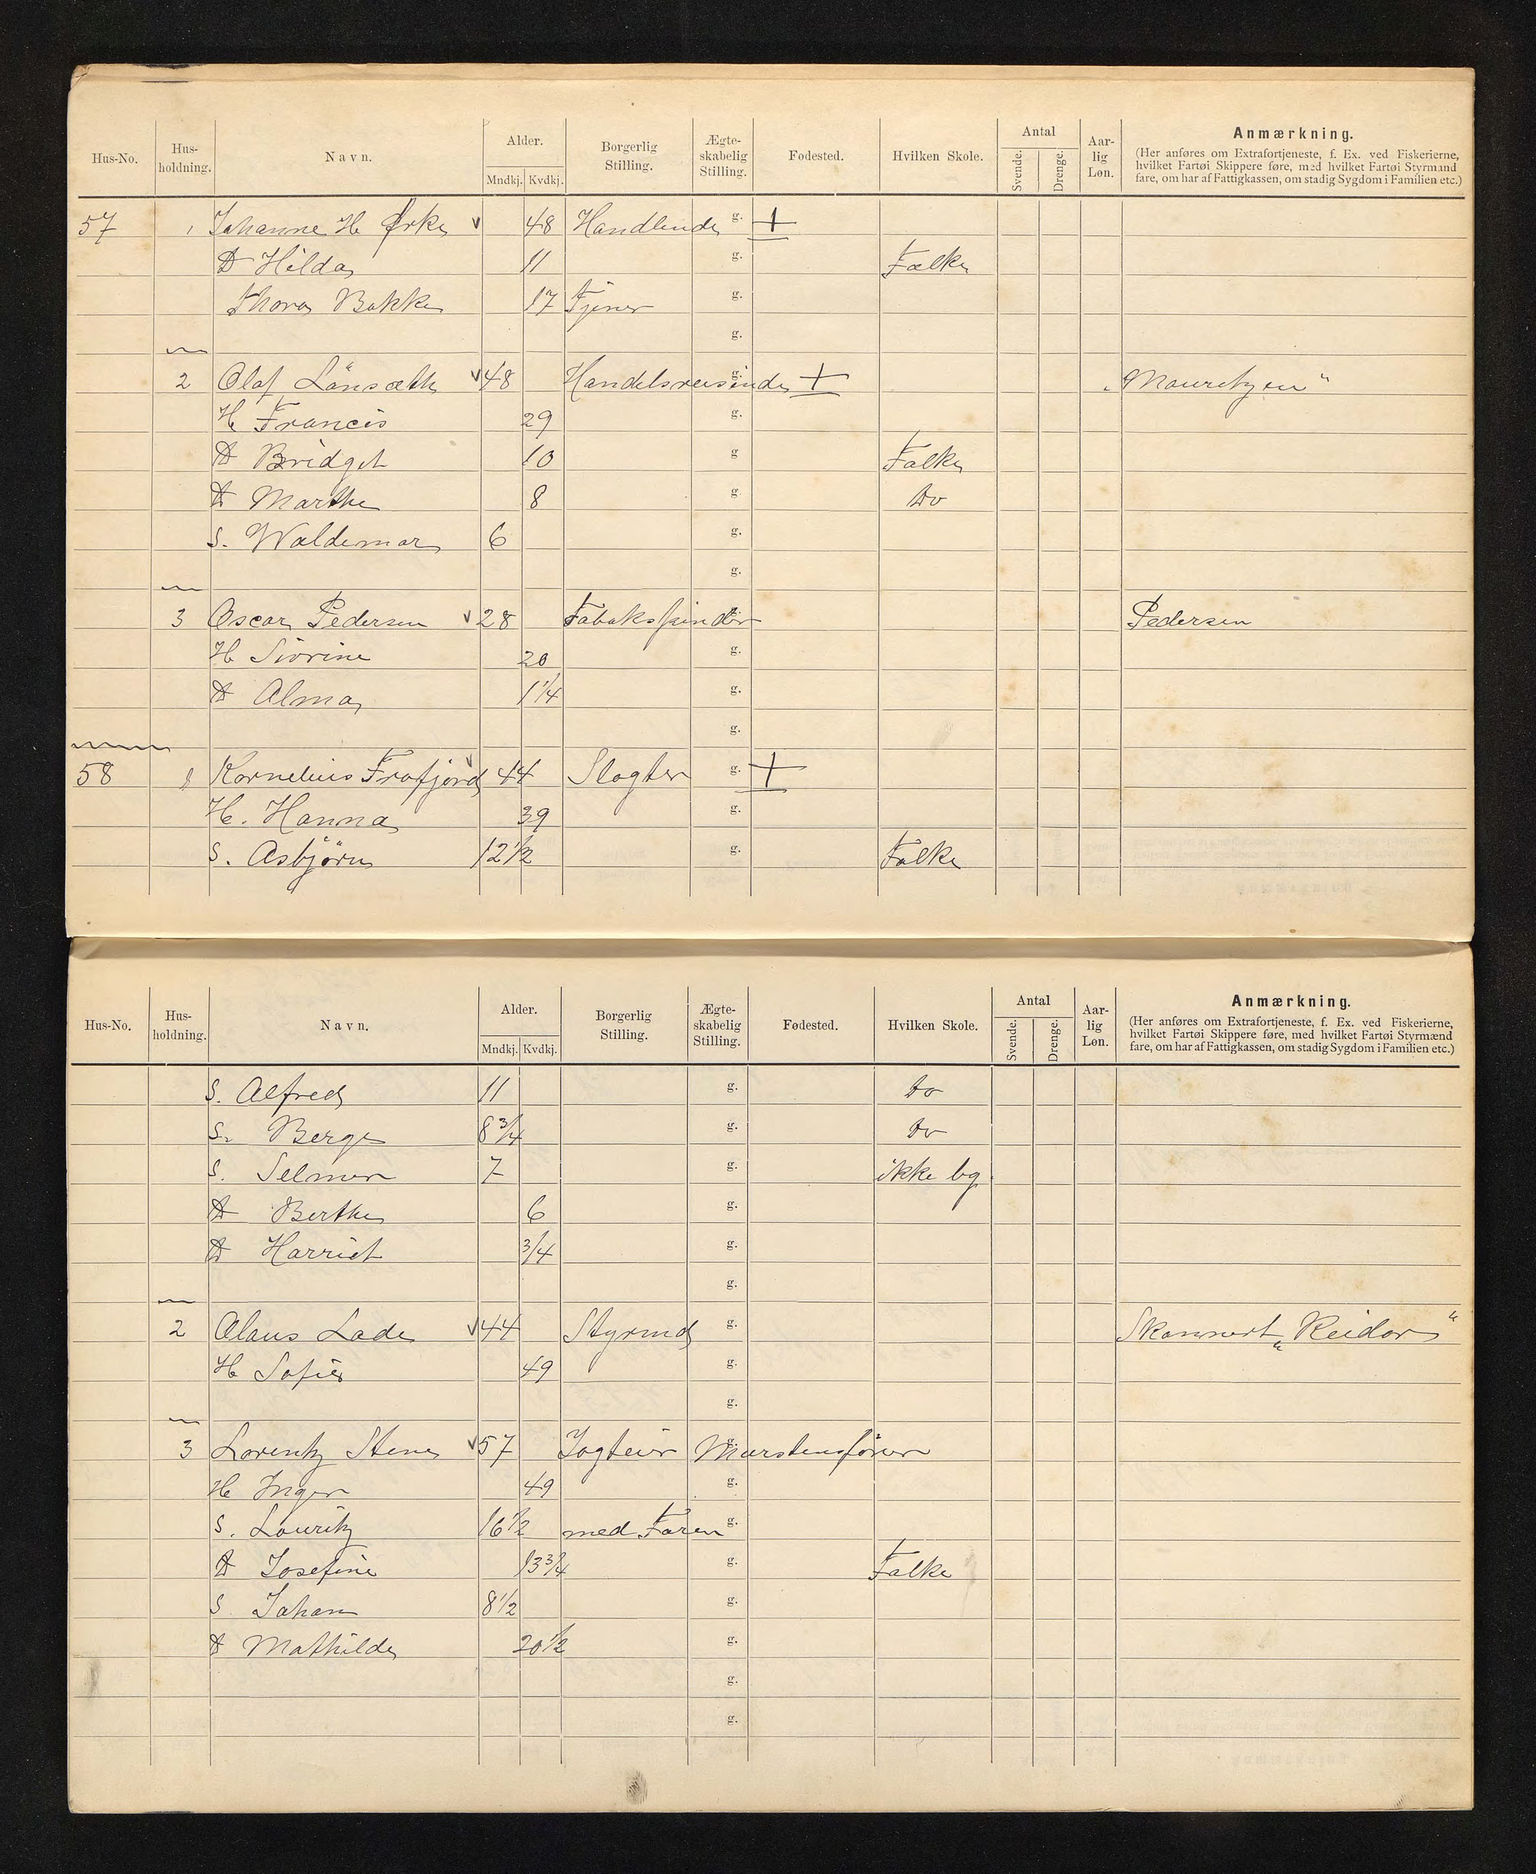 Hus-No. Hus-holdning. Navn. Alder. Mndkj. Kvdkj. Borgerlig Stilling. Ægte-skabelig Stilling. Fødested. Hvilken Skole. Antal Svende. Drenge. Aar-lig Løn. Anmærkning.
(Her anføres om Extrafortjeneste, f. Ex. ved Fiskerierne,
hvilket Fartøi Skippere føre, med hvilket Fartøi Styrmænd
fare, om har af Fattigkassen, om stadig Sygdom i Familien etc.)
57 1 Johanne H Ørke 48 Handlende g. +
D Hilda 11 g. Folke
Thora Bakke 17 Tjener g.
g.
2 Olaf Lönsæth 48 Handelsreisende g. + „Mauritzen"
H Francis 29 g.
D Bridget 10 g Folke
D Marthe 8 g. Do
S. Waldemar 6 g.
g.
3 Oscar Pedersen 28 Tobaksspinder g. Pedersen
H Sivrine 20 g.
D Alma 1 1/4 g.
g.
58 1 Kornelius Frafjord 44 Slagter g. +
H. Hanna 39 g.
S. Asbjörn 12 1/2 g. Folke
Hus-No. Hus-holdning. Navn. Alder. Mndkj. Kvdkj. Borgerlig Stilling. Ægte-skabelig Stilling. Fødested. Hvilken Skole. Antal Svende. Drenge. Aar-lig Løn. Anmærkning.
(Her anføres om Extrafortjeneste, f. Ex. ved Fiskerierne,
hvilket Fartøi Skippere føre, med hvilket Fartøi Styrmænd
fare, om har af Fattigkassen, om stadig Sygdom i Familien etc.)
S. Alfred 11 g. Do
S. Berge 8 3/4 g. Do
S. Selmer 7 g. ikke bg
D Berthe 6 g.
D Harriet 3/4 g.
g.
2 Claus Lade 44 Styrmd g. Skonnert „Reidar"
H Sofie 49 g.
g.
3 Lorentz Stene 57 Jagteier Murstensfører g.
H Inger 49 g.
S. Louritz 16 1/2 med Faren g.
D Josefine 13 3/4 g. Folke
S Johan 8 1/2 g.
D Mathilde 20 1/2 g.
g.
g.